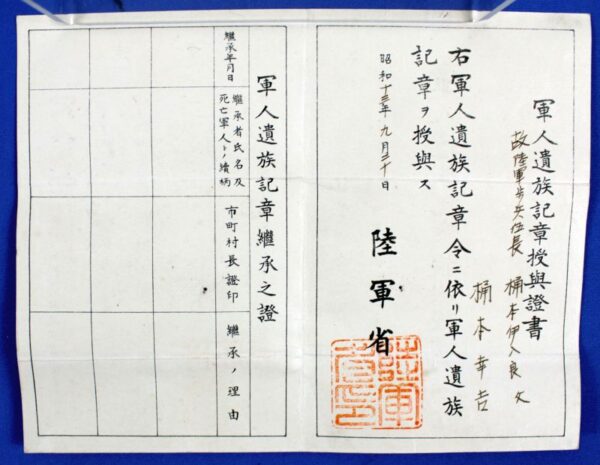 軍人遺族記章授與證書
故陸軍歩兵伍長 桶本 父
桶本幸吉
右軍人遺族記章令ニ依リ軍人遺族
記章ヲ授與ス
昭和十三年九月三十日
陸軍省
陸軍省印
軍人遺族記章繼承之證
繼承年月日
繼承者氏名及
死亡軍人トノ續柄
市町村長證印
繼承ノ理由